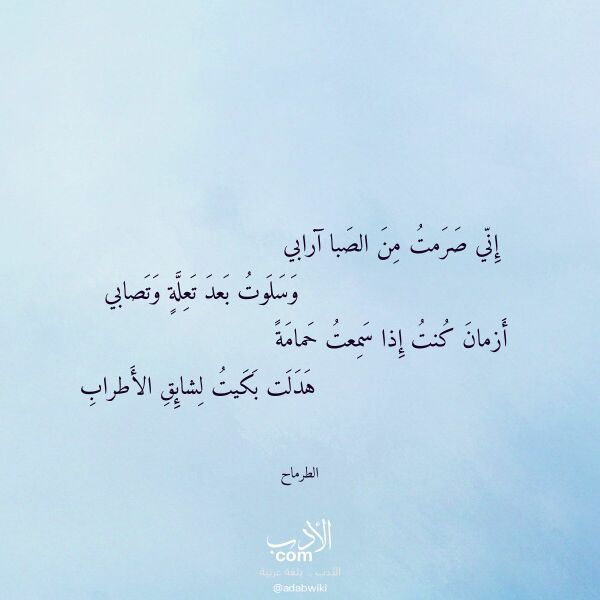 إِنّي صَرَمتُ مِنَ الصَبا آرابي
وَسَلَوتُ بَعدَ تَعِلَّةٍ وَتَصابي
أَزمانَ كُنتُ إِذا سَمِعتُ حَمامَةً
هَدَلَت بَكَيتُ لِشائِقِ الأَطرابِ
الطرماح
الأدب
com
الأدب .. بلغة عربية
@adabwiki